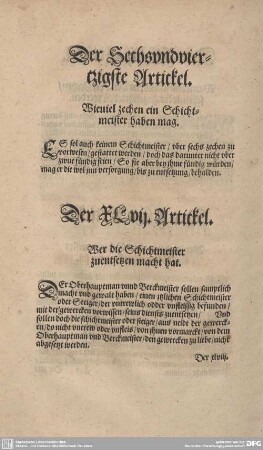 Der Sechsvndvier-
tzigste Artickel.
Wieuiel zechen ein Schicht-
meister haben mag.
ES sol auch keinem Schichtmeister / vber sechs zechen zu
vorwesen / gestattet werden / doch das darunter nicht vber
zwue fündig seien / So sie aber bey jhme fündig würden /
mag er die wol mit versorgung / bis zu entsetzung / behalden.
Der XLvij. Artickel.
Wer die Schichtmeister
zuentsetzen macht hat.
DEr Oberhauptman vnnd Berckmeister sollen samptlich
macht vnd gewalt haben / einen jtzlichen Schichtmeister
oder Steiger / der vntrewlich odder vnfleissig befunden /
mit der gewercken vorwissen / seins diensts zuentsetzen / Vnd
sollen doch die schichtmeister oder steiger / aus neide der gewerck-
en / do nicht vntrew oder vnfleis / von jhnen vormarckt / von dem
Oberhauptman vnd Berckmeister / den gewercken zu liebe / nicht
abgesetzt werden.
Der xlviij.